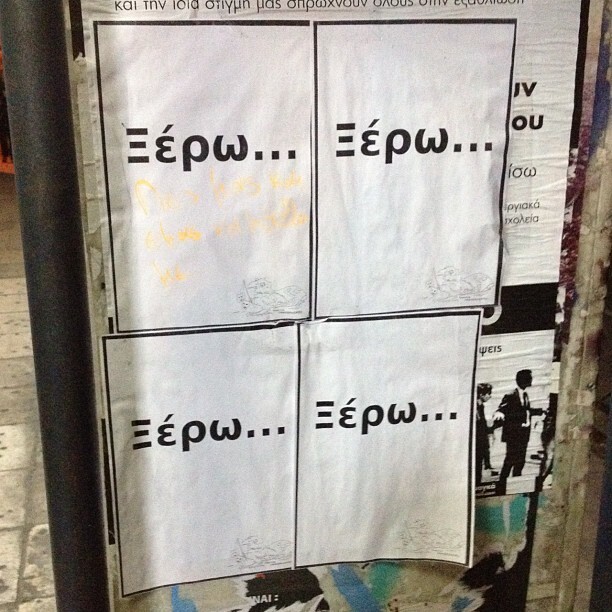 και την ίδια στιγμή μας σπρώχνουν όλους στην εξαθλίωση
Ξέρω...
Ξέρω...
Ξέρω...
Ξέρω...
υν
ου
ίσω
εργιακά
σχολεία
ψεις
ΝΑΙ: